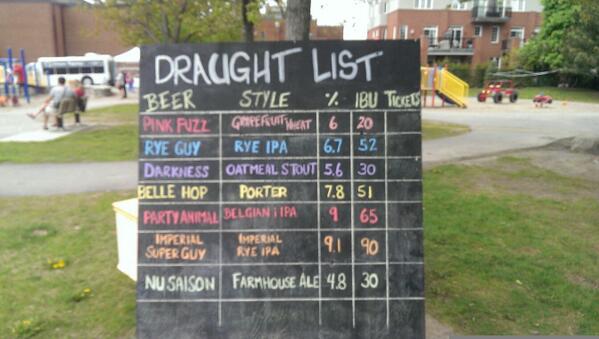 DRAUGHT LIST
BEER STYLE % IBU TICKETS
PINK FUZZ GRAPEFRUIT WHEAT 6 20
RYE GUY RYE IPA 6.7 52
DARKNESS OATMEAL STOUT 5.6 30
BELLE HOP PORTER 7.8 51
PARTY ANIMAL BELGIAN IPA 9 65
IMPERIAL SUPER GUY IMPERIAL RYE IPA 9.1 90
NU SAISON FARMHOUSE ALE 4.8 30